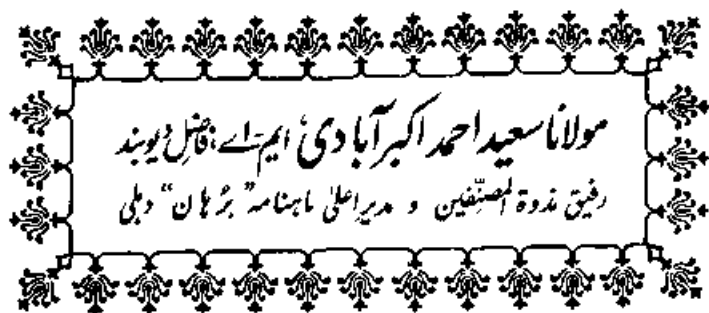 مولانا سعید احمد اکبر آبادی، ایم-اے، فاضل دیوبند
رفیق ندوۃ المصنّفین و مدیر اعلیٰ ماہنامہ "بُرہان" دہلی